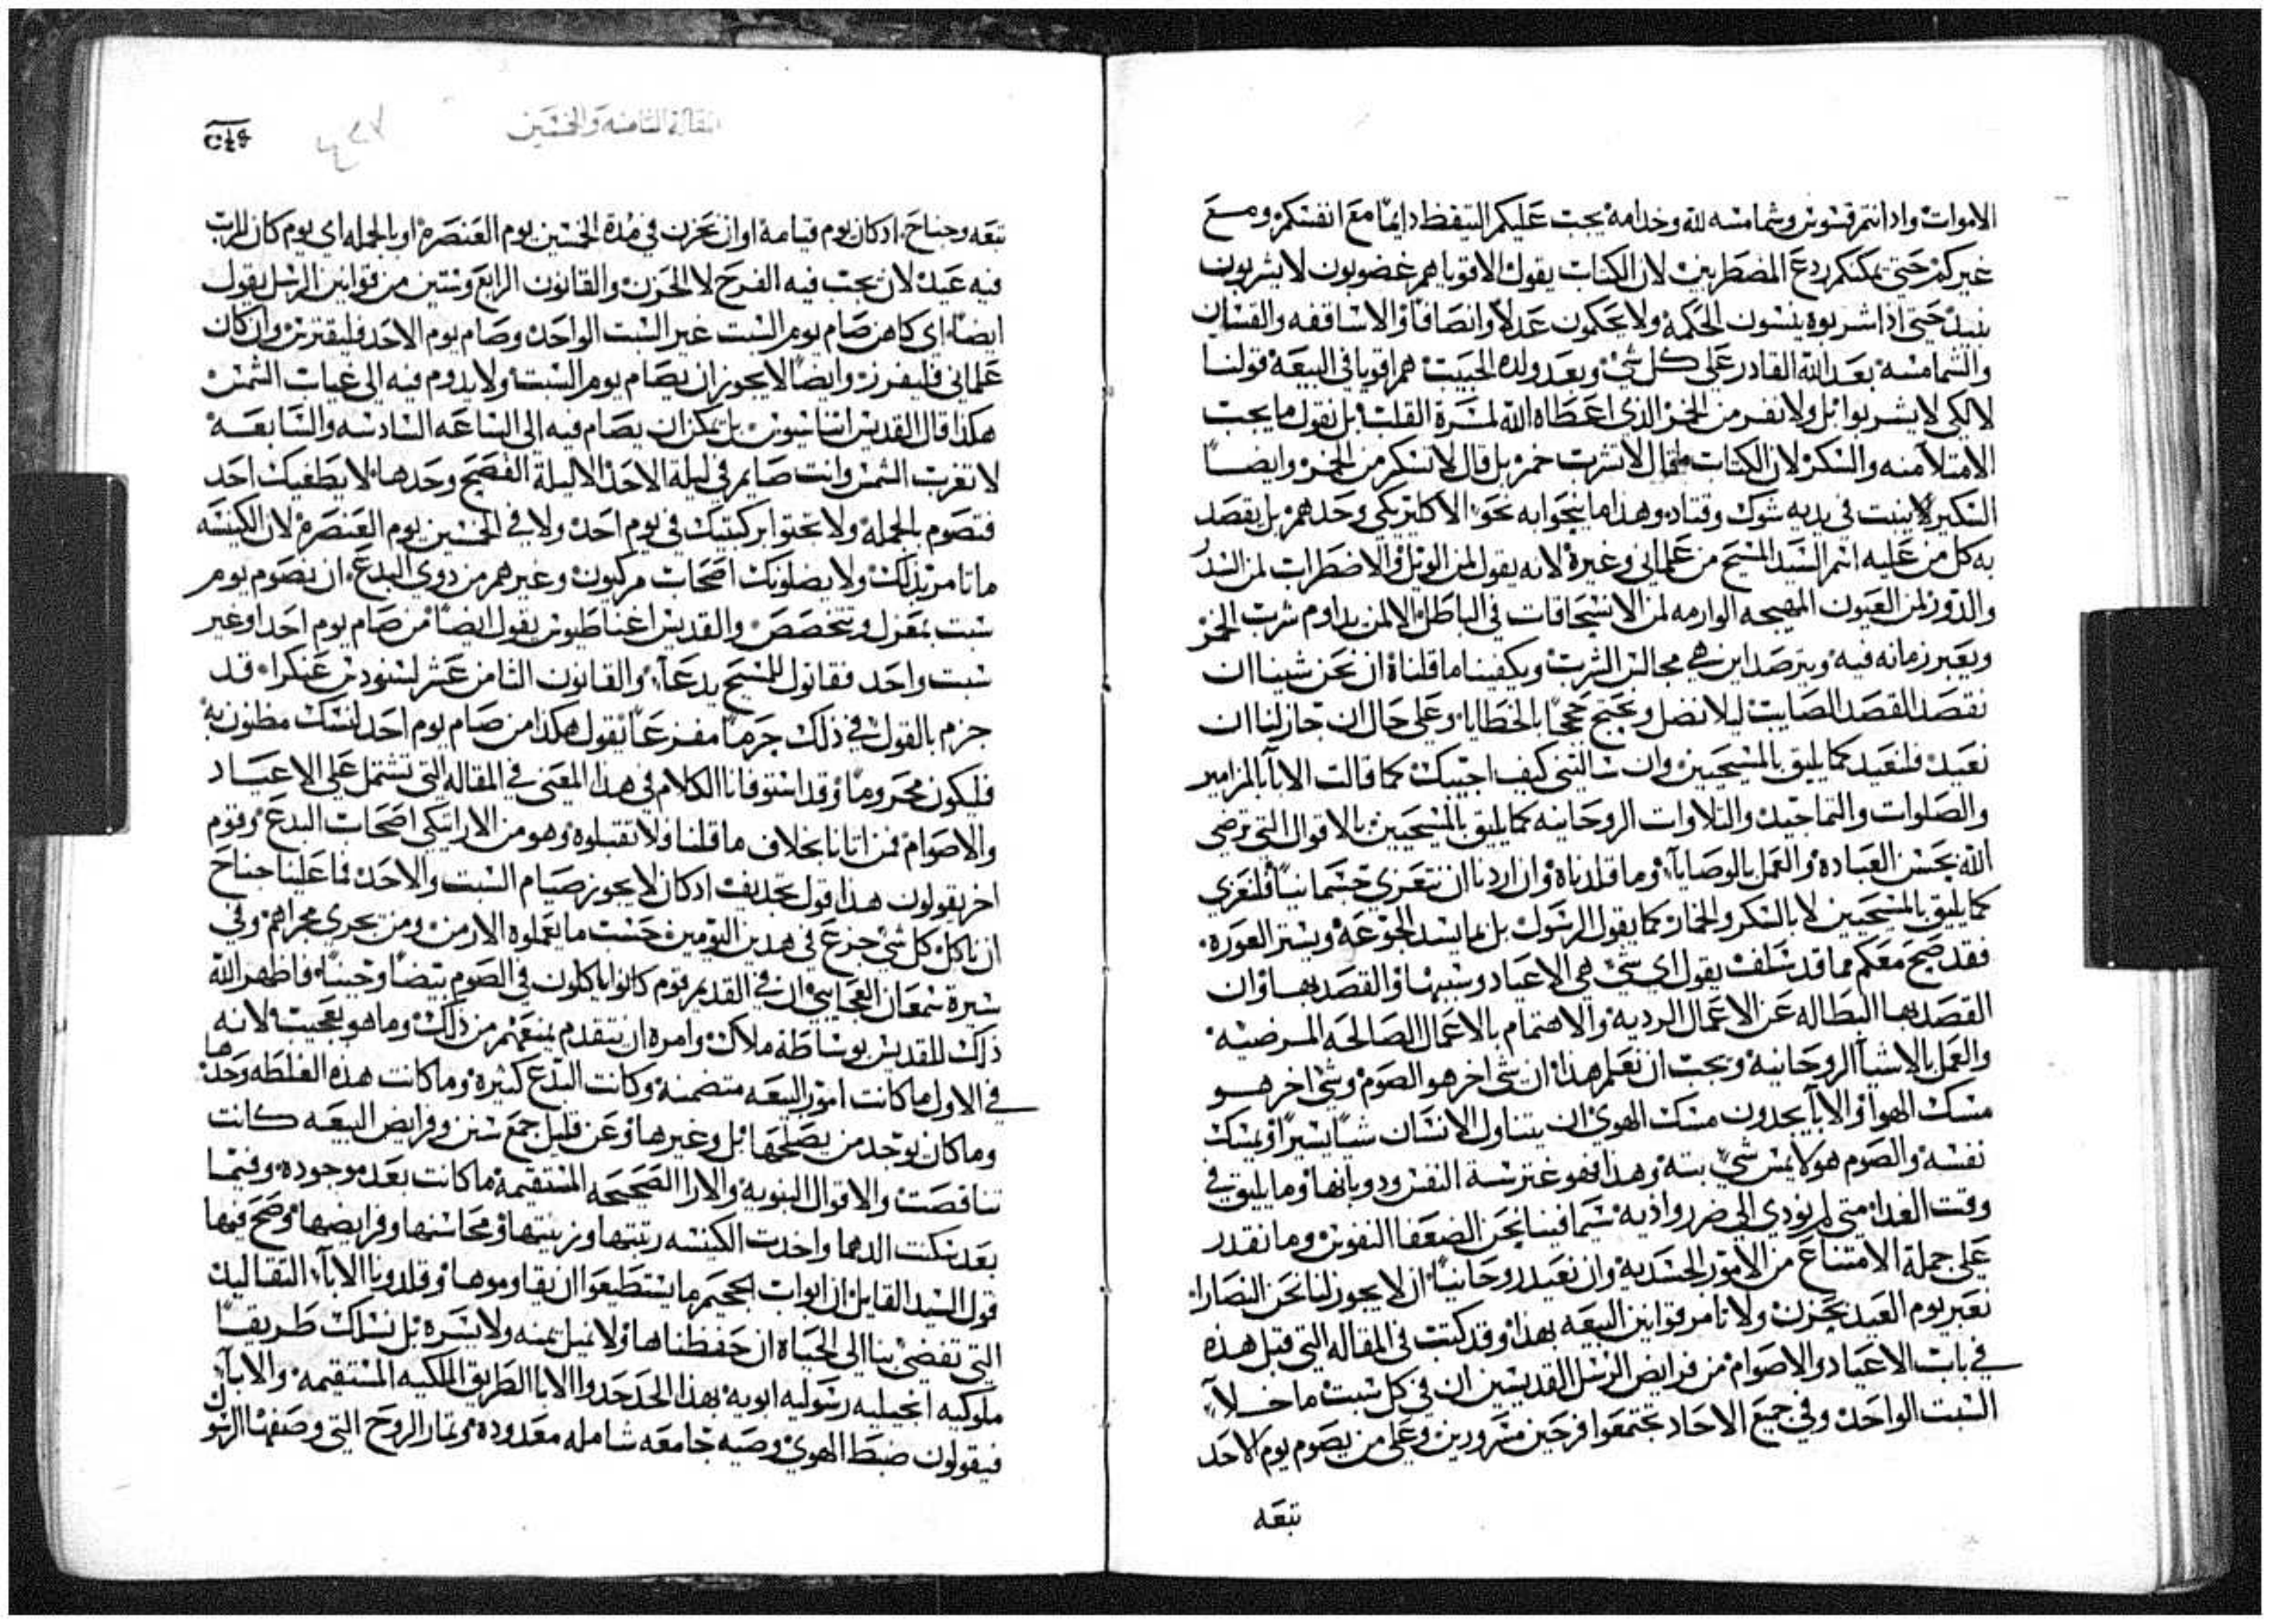 الاموات وادا انتم قسوس وشمامسه لله وخدامه يجب عليكم التيقظ دايمًا مع انفسكم ومع
غيركم حتي يمكنكم ردع المضطربين لان الكتاب يقول الاقويا هم غضوبون لا يشربون
نبيد حتي اذا شربوه ينسون الحكمه ولا يحكمون عدلاً وانصافًا والاساقفه والقسان
والشمامسه بعد الله القادر علي كل شي وبعد ولده الحبيب هم اقويا في البيعه قولنا
لا لكي لا يشربوا بل ولا نفر من الخمر الذي اعطاه الله لمسرة القلب بل نقول ما يجب
الامتلا منه والسكر لان الكتاب ما قال لا تشرب خمر بل قال لا تسكر من الخمر وايضًا
السكير لا ينبت في يديه شوك وقتاد وهذا ما ينجوا به نحو الاكليريكي وحدهم بل يقصد
به كل من عليه اسم السيد المسيح من علماني وغيره لانه يقول لمن الويل والاضطراب لمن السدُر
والدوز لمن العيون المهيجه الوارمه لمن الانسحاقات في الباطل الا لمن يداوم شرب الخمر
ويعبر زمانه فيه ويترصد اين هي مجالس الشرب ويكفينا ما قلناه ان نحن شينا ان
نقصد القصد الصايب ليلا نضل ونحتج حججًا بالخطايا وعلي حال ان جاز لنا ان
نعيد فلنعيد كما يليق بالمسيحيين وان سالتني كيف اجيبك كما قالت الابا بالمزامير
والصلوات والتماجيد والتلاوات الروحانيه كما يليق بالمسيحيين بالاقوال التي ترضي
الله بحسن العباده والعمل بالوصايا وما قلدناه وان اردنا ان نتعزي جسمانيًا فلنعزي
كما يليق بالمسيحيين لا بالسكر والخمار كما يقول الرسول بل بما يسد الجوعه ويستر العوره
فقد صح معكم مما قد سلف بقول اي شي هي الاعياد وسببها والقصد بها وان
القصد بها البطاله عن الاعمال الرديه والاهتمام بالاعمال الصالحه المرضيه
والعمل بالاشيا الروحانيه ويجب ان نعلم هذا ان شي اخر هو الصوم وشي اخر هو
مسك الهوا والابا يحدون مسك الهوي ان يتناول الانسان شيًا يسيرًا ويمسك
نفسه والصوم هو لا يمس شي بته وهذا فهو غترسة النفس ودوبانها وما يليق في
وقت الغدا متي لم تودي الي ضرر واديه سيما فينا نحن الضعفا النفوس وما نقدر
علي جملة الامتناع من الامور الجسديه وان نعيد روحانيًا ان لا يجوز لنا نحن النصارا
نعبر يوم العيد بحزن ولا تامر قوانين البيعه بهذا وقد كتبت في المقاله التي قبل هده
في باب الاعياد والاصوام من فرايض الرسل القديسين ان في كل سبت ما خلا
السبت الواحد وفي جميع الاحاد تجتمعوا فرحين مسرورين وعلي من يصوم يوم الاحد
تبعه
المقاله الثامنه والخمسين
تبعه وجناح ادكان يوم قيامه او ان نحزن في مدة الخمسين يوم العنصره او بالجمله اي يوم كان للرب
فيه عيد لان يجب فيه الفرح لا الحزن والقانون الرابع وستين من قوانين الرسل يقول
ايضًا اي كاهن صام يوم السبت غير السبت الواحد وصام يوم الاحد فليقترس وان كان
علماني فليفرز وايضًا لا يجوز ان يصام يوم السبت ولا يدوم فيه الي غياب الشمس
هكذا قال القديس اتناسيوس بل يمكن ان يصام فيه الي الساعه السادسه والسابعه
لا تغرب الشمس وانت صايم في ليلة الاحد الا ليلة الفصح وحدها لا يطغيك احد
فتصوم بالجمله ولا تحتوا بركبتيك في يوم احد ولا في الخمسين يوم العنصره لان الكنيسه
ما تامر بذلك ولا يضلونك اصحاب مركيون وغيرهم من ذوي البدع ان تصوم يوم
سبت بمعزل وتتخصص والقديس اغناطيوس يقول ايضًا من صام يوم احد او غير
سبت واحد فقاتول للمسيح يدعا والقانون الثامن عشر لسنودس غنكرا قد
جزم بالقول في ذلك جرمًا مفزعًا يقول هكذا من صام يوم احد لنسك مظنون به
فليكون محرومًا وقد استوفانا الكلام في هذا المعني في المقاله التي تشتمل علي الاعياد
والاصوام فمن اتانا بخلاف ما قلنا فلا تقبلوه وهو من الاراتيكي اصحاب البدع وقوم
اخر يقولون هذا قول تجديف ادكان لا يجوز صيام السبت والاحد فما علينا جناح
ان ناكل كل شي جزع في هدين اليومين حسب ما يعملوه الارمن ومن يجري مجراهم وفي
سيرة سمعان العجايبي ان في القديم قوم كانوا ياكلون في الصوم بيضًا وجبنًا فاظهر الله
ذلك للقديس بوساطة ملاك وامره ان يتقدم يمنعهم من ذلك وما هو بعجيب لانه
في الاول ما كانت امور البيعه متضمنه وكانت البدع كثيره وما كانت هذه الغلطه وحدها
وما كان يوجد من يصلحها بل وغيرها وعن قليل جمع سنن وفرايض البيعه كانت
تناقصت والاقوال البنويه والارا الصحيحه المستقيمه ما كانت بعد موجوده وفيما
بعد سكت الدهما واخدت الكنيسه رتبتها وزينتها ومحاسنها وفرايضها وصح فيها
قول السيد القايل ان ابواب الجحيم ما يستطيعوا ان يقاوموها وقلدونا الابا التقاليد
التي تفضي بنا الي الحياة ان حفظناها ولا نميل يمنه ولا يسره بل نسلك طريقًا
ملوكيه انجيليه رسوليه ابويه بهذا الحد حدوا الابا الطريق الملكيه المستقيمه والابا
فيقولون ضبط الهوي وصيه جامعه شامله معدوده وثمار الروح التي وصفها الرسول